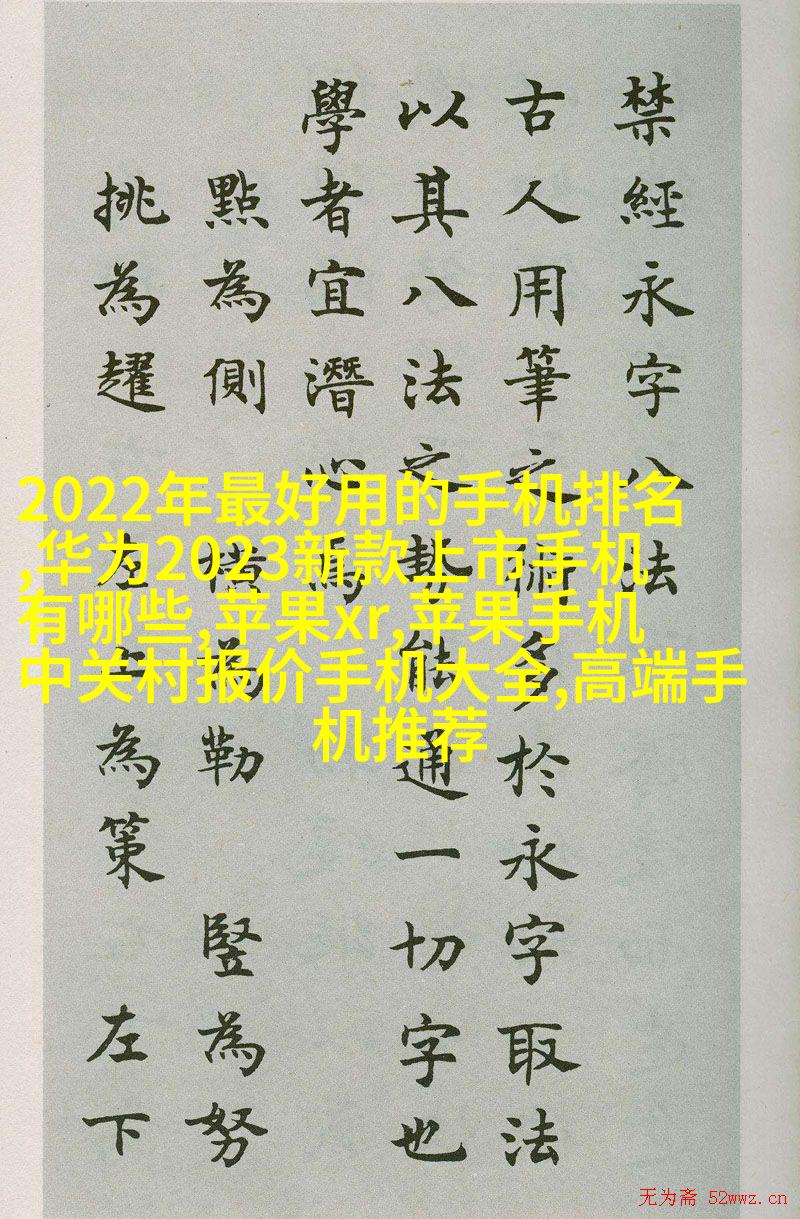 禁經永字八法
古人用筆之術多於永字取法
以其八法之勢能通一切字也
學者宜潛心焉
點為側 橫為勒 竪為努
挑為趯 左上為策 左下
2022年最好用的手机排名
,华为2023新款上市手机
有哪些,苹果xr,苹果手机
中关村报价手机大全,高端手
机推荐
无为斋 52wwz.cn